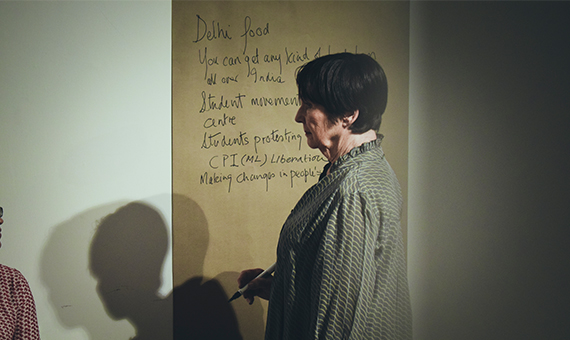 Delhi food
You can get any kind of
all over India
Student movement
centre
Students protesting
CPI (ML) Liberation
Making Changes in people's